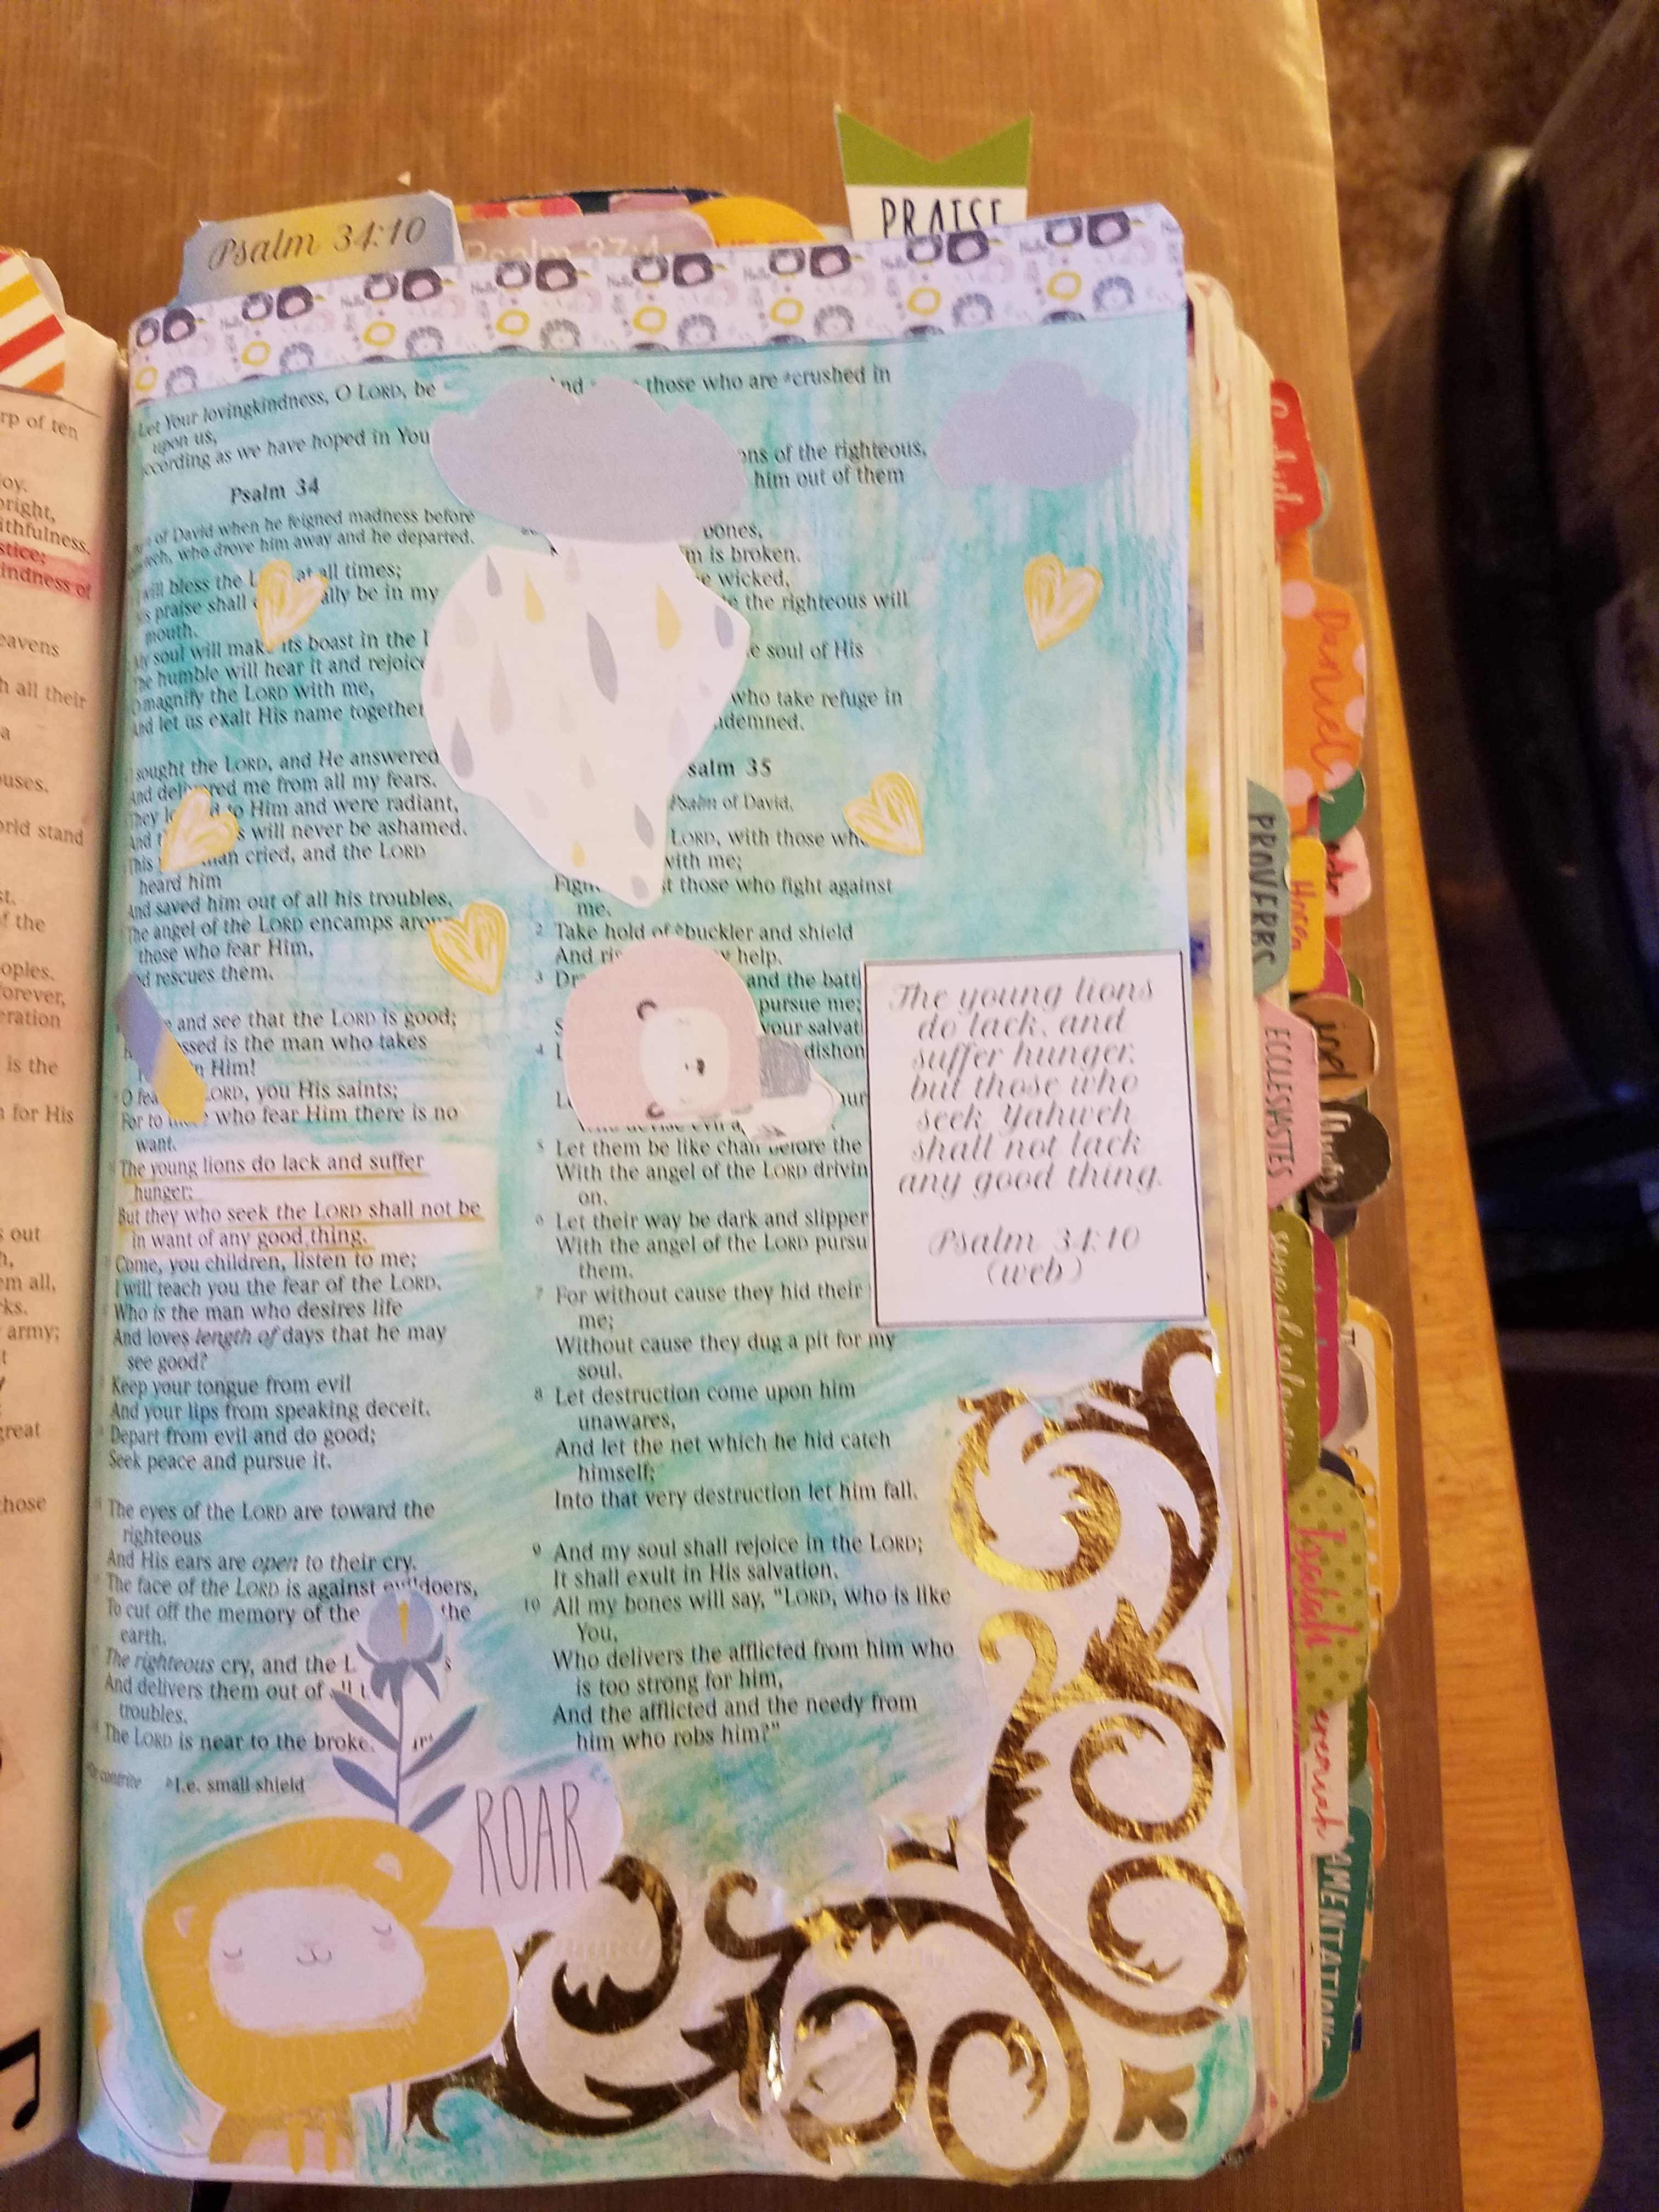 Psalm 34:10
Psalm 37:4
PRAISE
rp of ten
joy.
bright,
ithfulness.
stice;
indness of
eavens
h all their
a
ouses.
orld stand
st.
f the
oples.
forever,
eration
is the
n for His
s out
h,
em all.
rks.
army;
great
those
Let Your lovingkindness, O LORD, be
upon us,
ccording as we have hoped in You
Psalm 34
of David when he feigned madness before
who drove him away and he departed.
will bless the L at all times;
s praise shall ally be in my
mouth.
soul will make its boast in the
humble will hear it and rejoice
magnify the LORD with me,
And let us exalt His name together
sought the LORD, and He answered
And delivered me from all my fears.
They to Him and were radiant,
And s will never be ashamed.
This man cried, and the LORD
heard him
And saved him out of all his troubles.
The angel of the LORD encamps arou
those who fear Him,
nd rescues them.
and see that the LORD is good;
essed is the man who takes
n Him!
O fea ORD, you His saints;
For to who fear Him there is no
want.
The young lions do lack and suffer
hunger;
But they who seek the LORD shall not be
in want of any good thing.
Come, you children, listen to me;
I will teach you the fear of the LORD.
Who is the man who desires life
And loves length of days that he may
see good?
Keep your tongue from evil
And your lips from speaking deceit.
Depart from evil and do good;
Seek peace and pursue it.
The eyes of the LORD are toward the
righteous
And His ears are open to their cry.
The face of the LORD is against evildoers,
To cut off the memory of the the
earth.
The righteous cry, and the L s
And delivers them out of all t
troubles.
The LORD is near to the broke
contrite b I.e. small shield
those who are crushed in
ons of the righteous,
him out of them
bones,
m is broken.
e wicked,
e the righteous will
e soul of His
who take refuge in
ndemned.
salm 35
Psalm of David.
LORD, with those wh
with me;
Figh t those who fight against
me.
2 Take hold of buckler and shield
And ri help.
3 Dr and the batt
pursue me;
S your salvat
4 L dishon
5 Let them be like chaff before the
With the angel of the LORD drivin
on.
6 Let their way be dark and slipper
With the angel of the LORD pursu
them.
7 For without cause they hid their
me;
Without cause they dug a pit for my
soul.
8 Let destruction come upon him
unawares,
And let the net which he hid catch
himself;
Into that very destruction let him fall.
9 And my soul shall rejoice in the LORD;
It shall exult in His salvation.
10 All my bones will say, "LORD, who is like
You,
Who delivers the afflicted from him who
is too strong for him,
And the afflicted and the needy from
him who robs him?"
The young lions
do lack, and
suffer hunger,
but those who
seek Yahweh
shall not lack
any good thing.
Psalm 34:10
(web)
ROAR
Daniel
PROVERBS
Hosea
ECCLESIASTES
Joel
Amos
song of solomon
Isaiah
eremiah
LAMENTATIONS